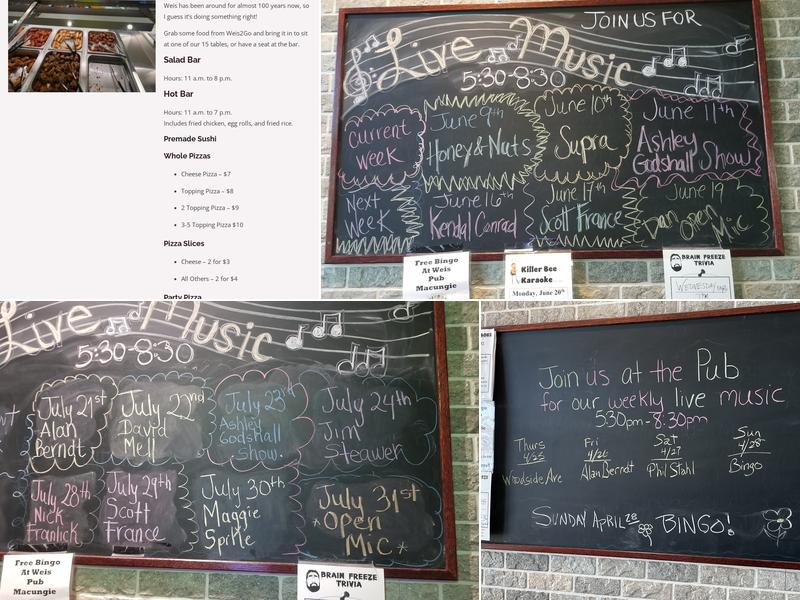 Weis has been around for almost 100 years now, so
I guess it's doing something right!
Grab some food from Weis2Go and bring it in to sit
at one of our 15 tables, or have a seat at the bar.
Salad Bar
Hours: 11 a.m. to 8 p.m.
Hot Bar
Hours: 11 a.m. to 7 p.m.
Includes fried chicken, egg rolls, and fried rice.
Premade Sushi
Whole Pizzas
Cheese Pizza – $7
Topping Pizza – $8
2 Topping Pizza – $9
3-5 Topping Pizza $10
Pizza Slices
Cheese – 2 for $3
All Others – 2 for $4
Party Pizza
JOIN US FOR
Live Music
5:30-8:30
current
week
June 9th
Honey & Nuts
June 10th
Supra
June 11th
Ashley
Godshall Show
Next
Week
June 16th
Kendal Conrad
June 17th
Scott France
June 19
Dan Open
Mic
Free Bingo
At Weis
Pub
Macungie
Killer Bee
Karaoke
Monday, June 20th
BRAIN FREEZE
TRIVIA
WEDNESDAY
Live Music
5:30-8:30
July 21st
Alan
Berndt
July 22nd
David
Mell
July 23rd
Ashley
Godshall
Show.
July 24th
Jim
Steawer
July 28th
Nick
Franlick
July 29th
Scott
France
July 30th
Maggie
Sprile
July 31st
*Open
Mic*
Free Bingo
At Weis
Pub
Macungie
BRAIN FREEZE
TRIVIA
Join us at the Pub
for our weekly live music
5:30pm-8:30pm
Thurs
4/25
Woodside Ave
Fri
4/26
Alan Berndt
Sat
4/27
Phil Stahl
Sun
4/28
Bingo
SUNDAY APRIL 28 BINGO!